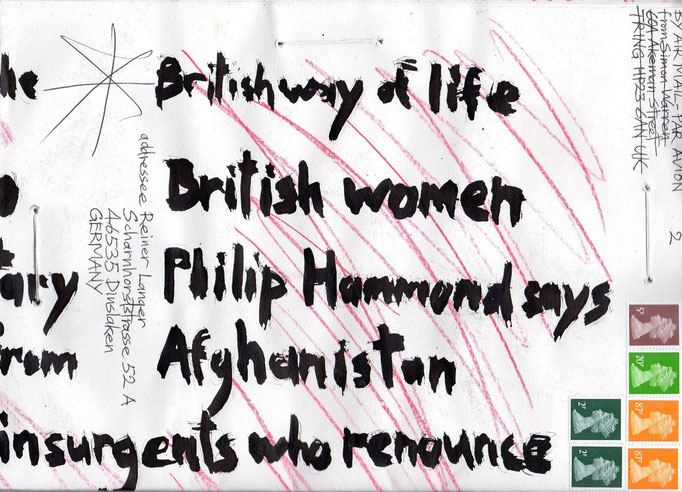 he British way of life
o British women
tary Philip Hammond says
from Afghanistan
insurgents who renounce
addressee Reiner Langer
Scharnhorststrasse 52 A
46535 Dinslaken
GERMANY
BY AIR MAIL - PAR AVION
from Simon Warren
60A Akeman Street
TRING HP23 6AN UK
2
5P
20P
87P
2P
87P
2P